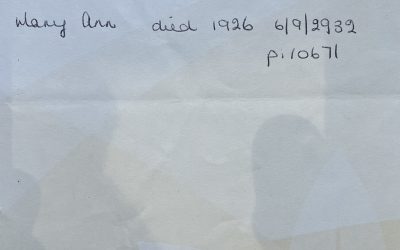 Mary Ann died 1926 6/9/2932
p.10671